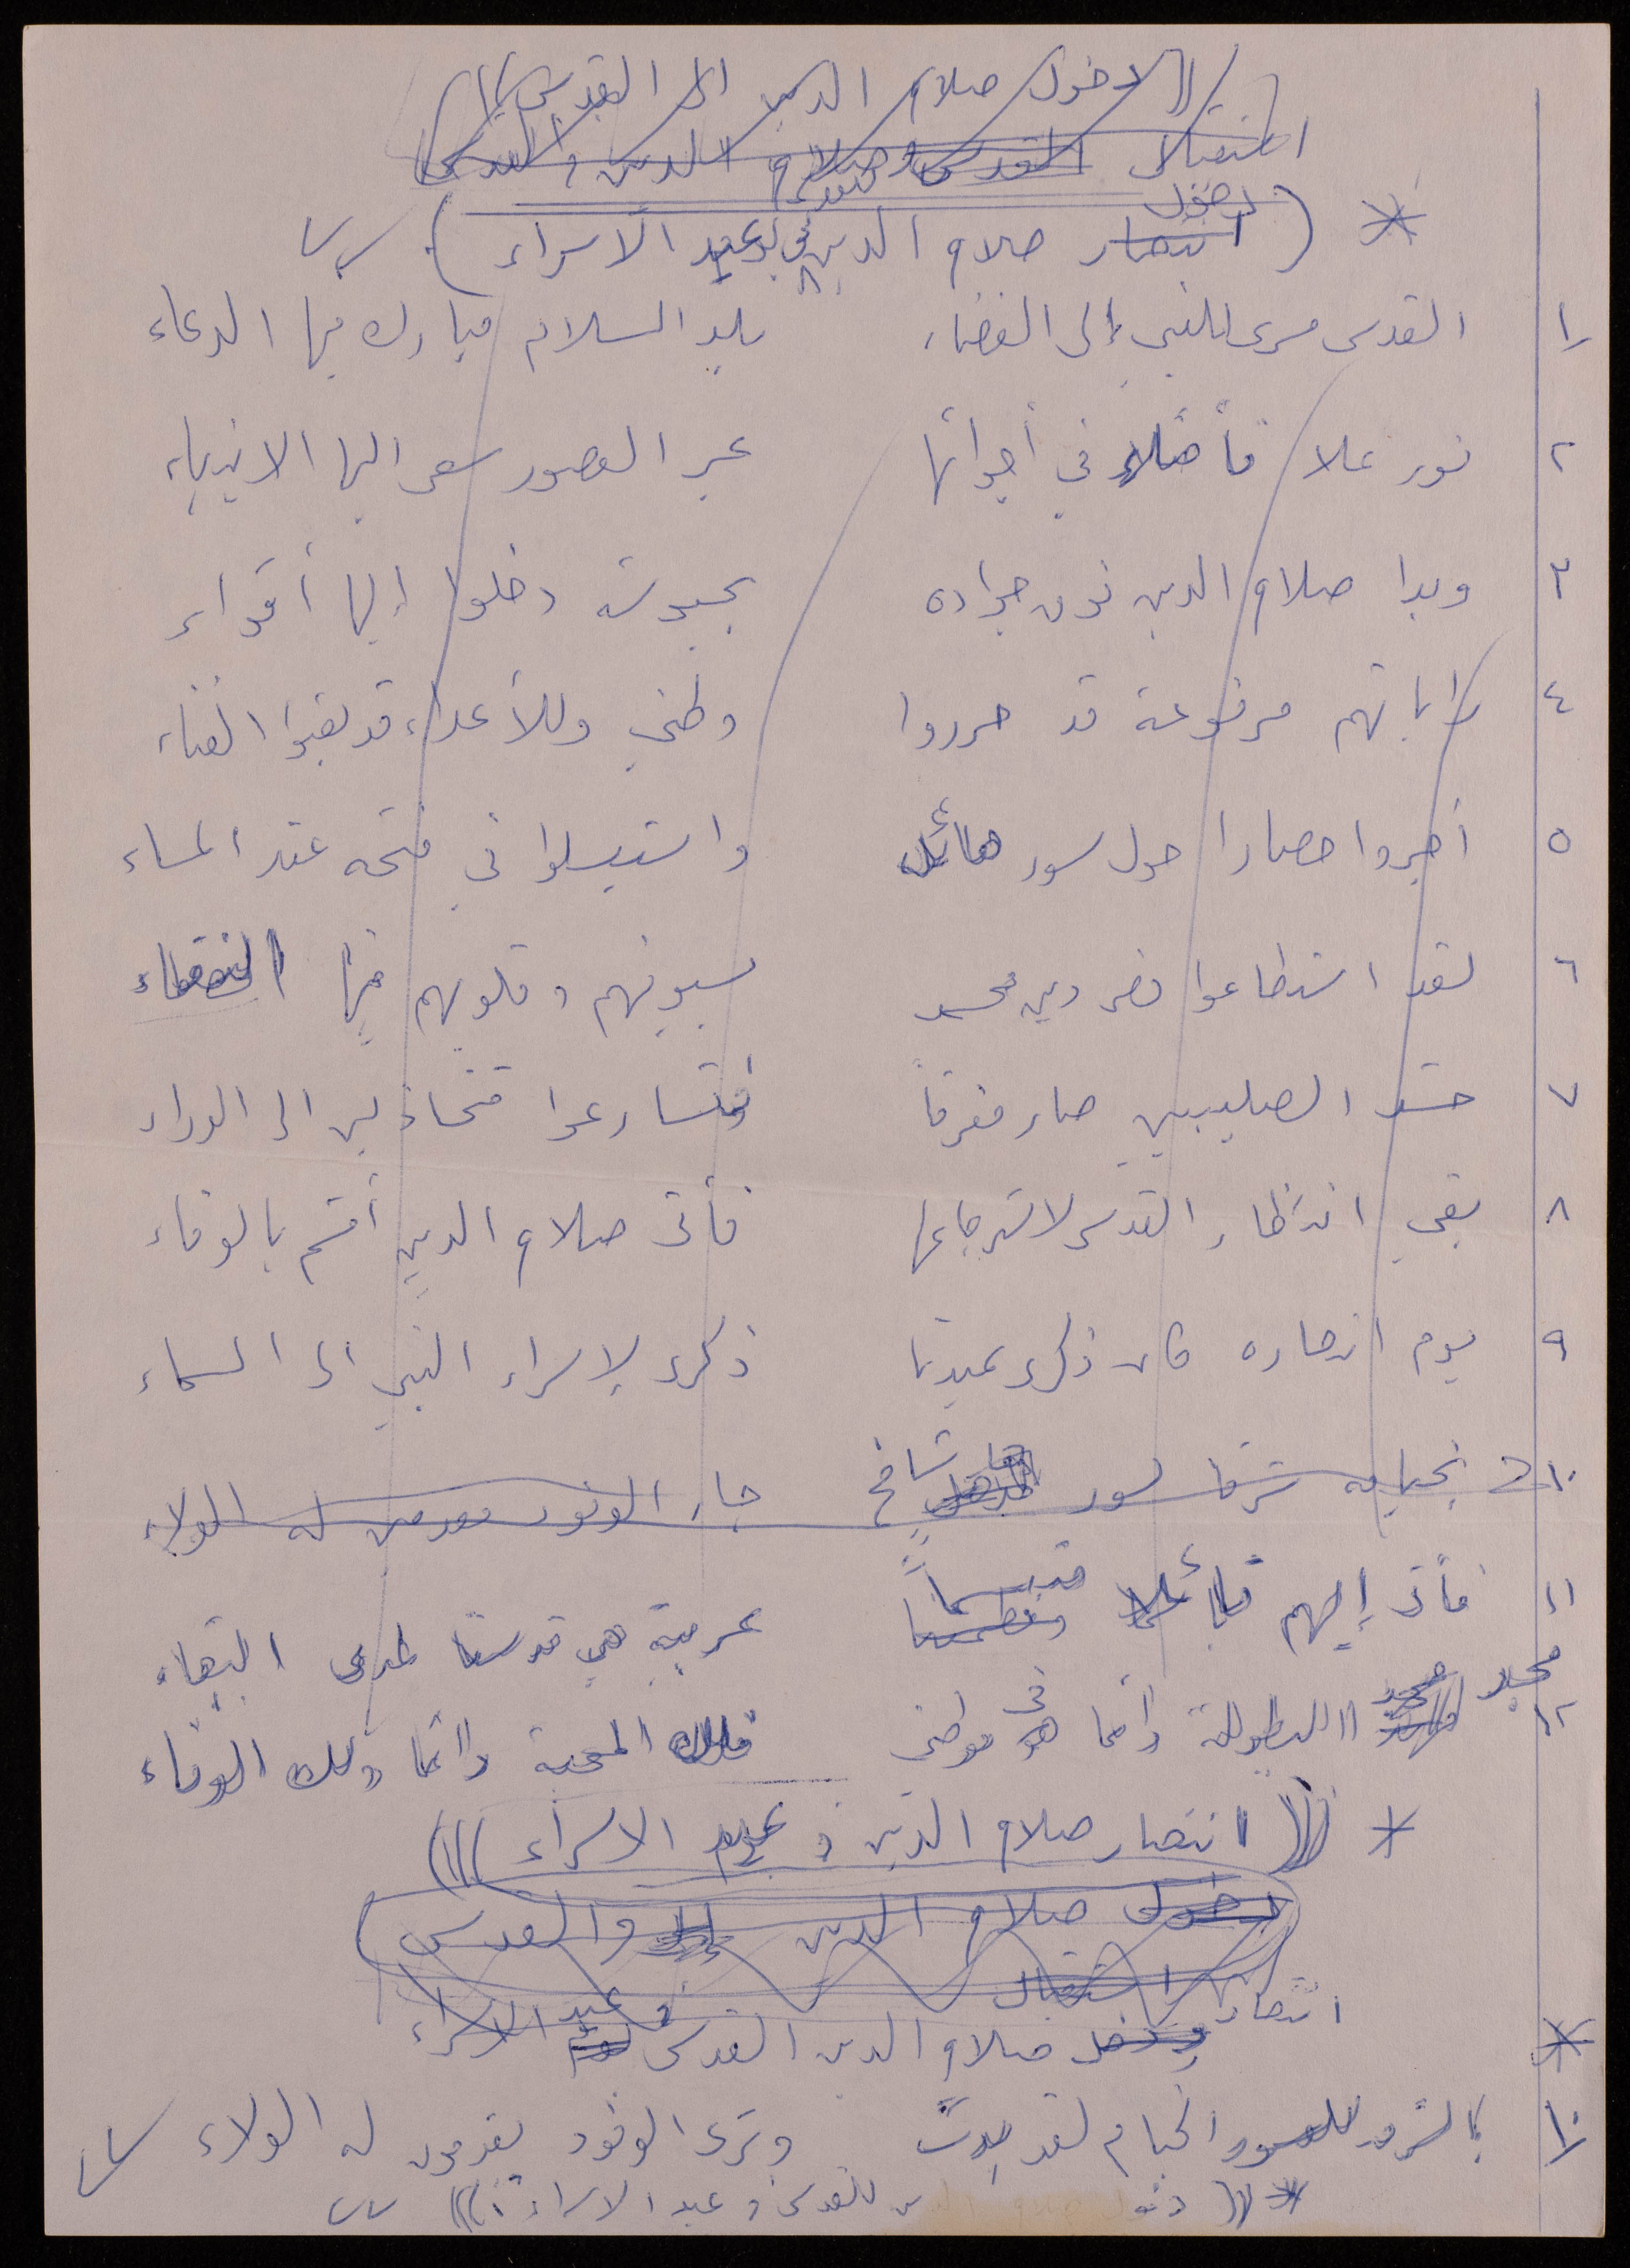 ((دخول صلاح الدين الى القدس))
استقبال القدس وصلاح الدين والقدس
دخول
* (انتصار صلاح الدين في عيد الاسراء)
١ القدس مسرى للنبي إلى الفضاء بلد السلام مبارك فيها الدعاء
٢ نور علا في أجوائها عبر العصور سعى اليها الانبياء
٣ وبدا صلاح الدين فوق جواده بجيوشه دخلوا إليها أقوياء
٤ راياتهم مرفوعة قد حرروا وطني وللأعداء قد بقوا الفناء
٥ أجروا حصارا حول سور هائل واستبسلوا في فتحه عند المساء
٦ لقد استطاعوا نصر دين محمد بسيوفهم وقلوبهم فيها النقاء
٧ حشد الصليبيين صار مفرقاً فتسارعوا متخاذلين الى الوراء
٨ بقي انتظار القدس لاسترجاعها فأتى صلاح الدين أقسم بالوفاء
٩ يوم انتصاره كان ذكرى عيدنا ذكرى لإسراء النبي الى السماء
١٠ بخيامه شرقا لسور شامخ جاء الوفود مقدمين له الولاء
١١ فأتى إليهم قائلا مبتسماً عربية هي قدسنا لمدى البقاء
١٢ مجد البطولة دائما في موطني فلك المحبة دائما ولك الوفاء
* ((انتصار صلاح الدين وعيد الاسراء))
دخول صلاح الدين والقدس
استقبال
انتصار صلاح الدين القدس وعيد الاسراء
١٠ بالشرق للسور الخيام لقد بدت وترى الوفود يقدمون له الولاء
* ((دخول للقدس وعيد الاسراء))